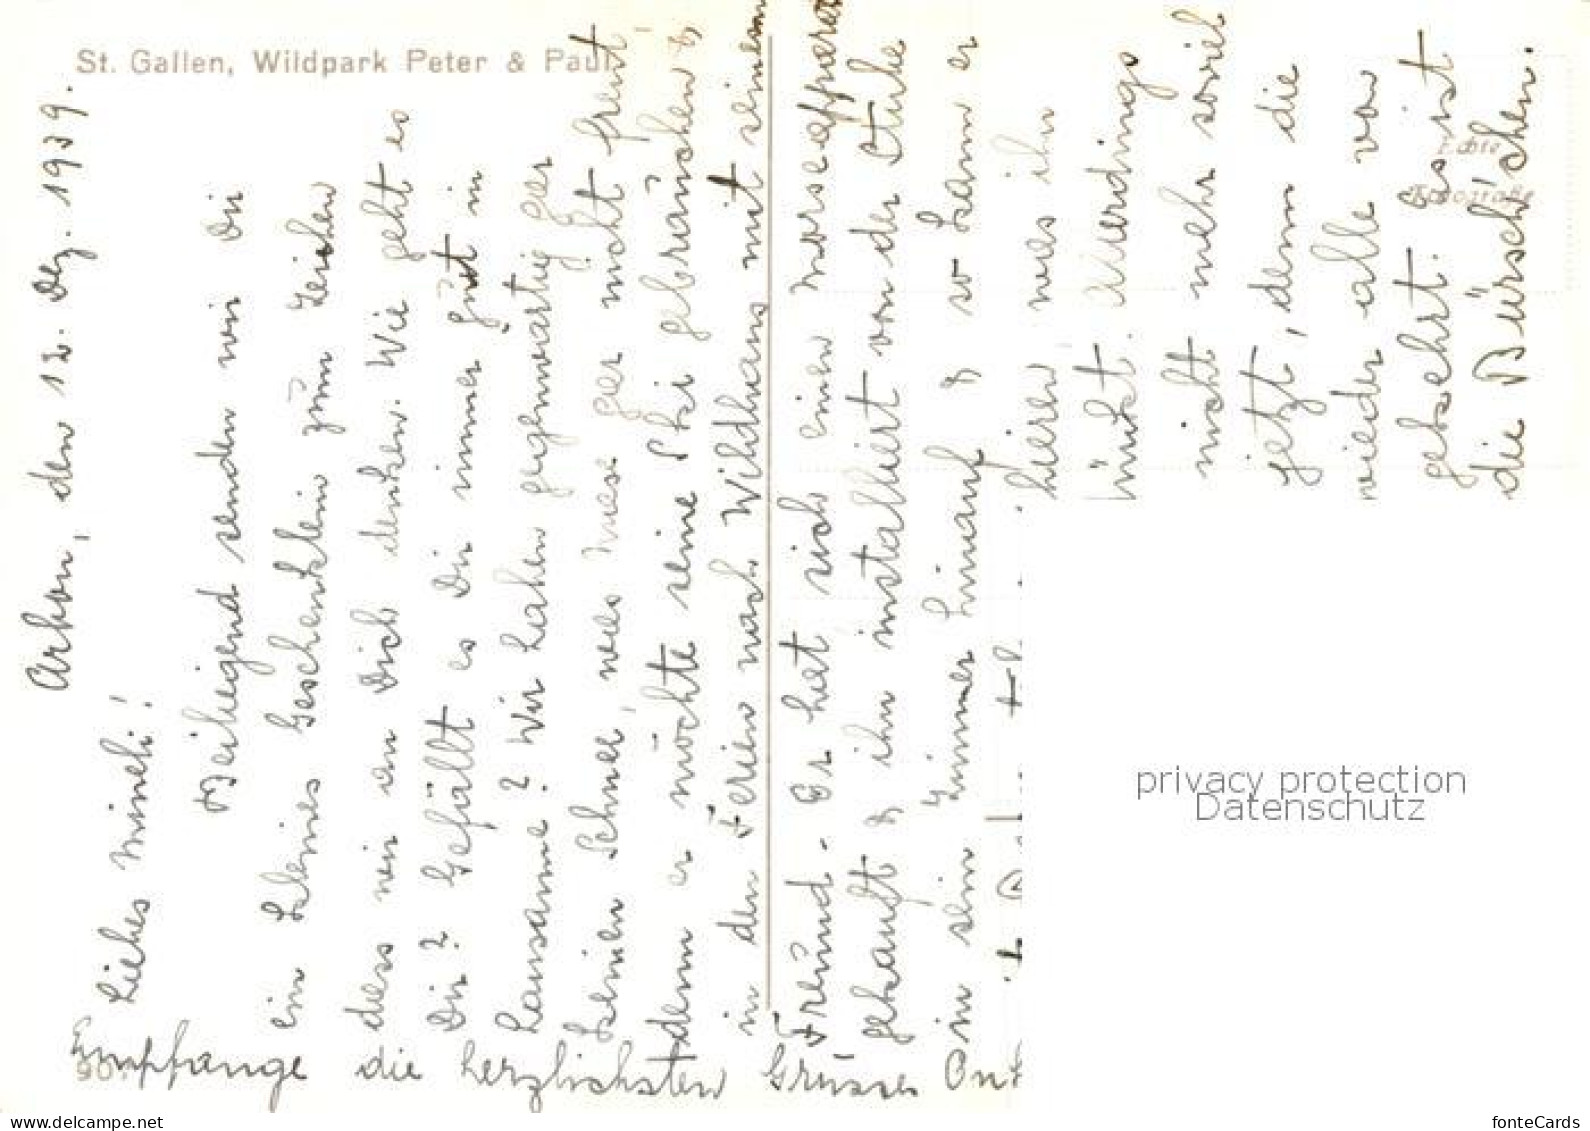 St. Gallen, Wildpark Peter & Paul
Arbon, den 12. Dez. 1939.
Liebes Mineli!
Beiliegend senden wir Dir
ein kleines Geschenklein zum Zeichen
dass wir an Dich denken. Wie geht es
Dir? Gefällt es Dir immer gut in
Lausanne? Wir haben gegenwärtig gar
keinen Schnee, was gar nicht freut,
denn er möchte seine Ski gebrauchen &
in den Ferien nach Wildhaus mit seinem
Freund. Er hat sich einen Morseapparat
gekauft & ihn installiert von der Stube
in sein Zimmer hinauf & so kann er
hören was ihn
Allerdings
nicht mehr soviel
jetzt, denn die
wieder alle von
gekehrt. Es ist
die Bürschchen.
Empfange die herzlichsten Grüsse
Echte
Fotografie
privacy protection
Datenschutz
delcampe.net
fonteCards